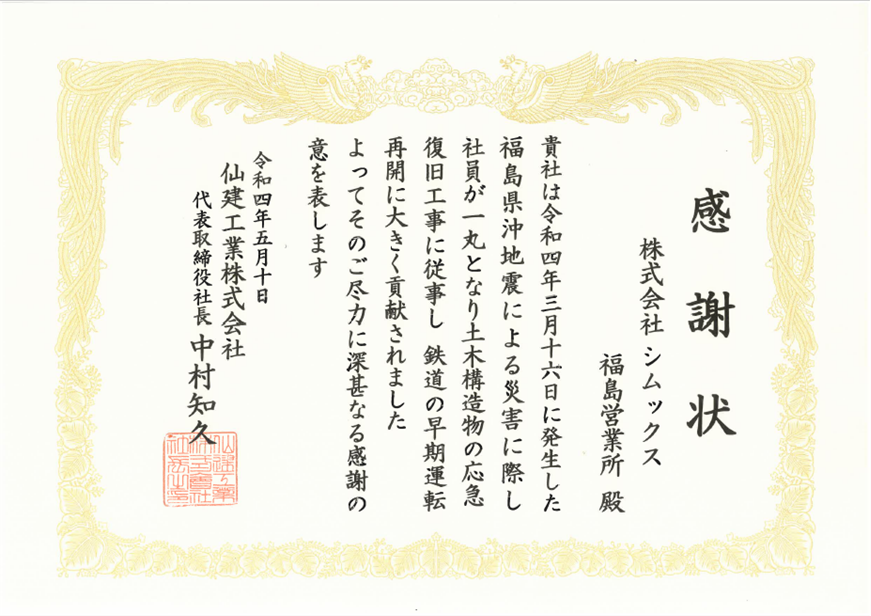 感謝状
株式会社 シムックス
福島営業所 殿
貴社は令和四年三月十六日に発生した
福島県沖地震による災害に際し
社員が一丸となり土木構造物の応急
復旧工事に従事し 鉄道の早期運転
再開に大きく貢献されました
よってそのご尽力に深甚なる感謝の
意を表します
令和四年五月十日
仙建工業株式会社
代表取締役社長 中村知久